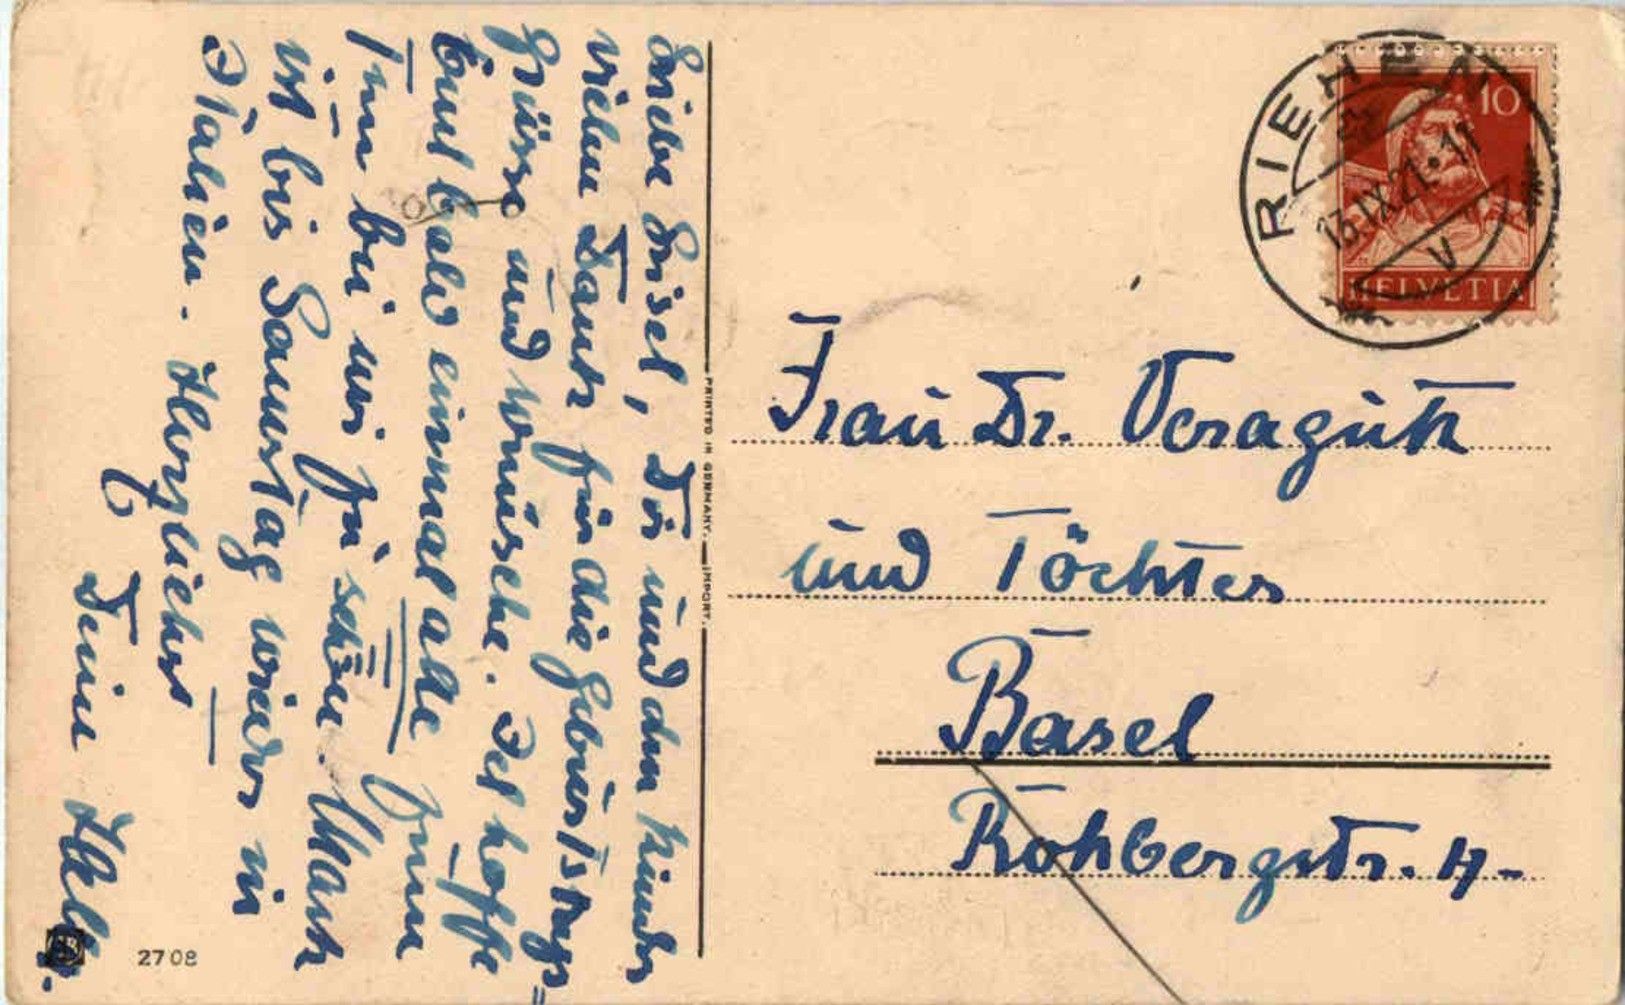 Liebe Lisel, Dir und den Kinder
vielen Dank für die Geburtstags=
Grüsse und Wünsche. Ich hoffe
Euch bald einmal alle zum
Tee bei mir zu sehen. Mark
ist bis Samstag wieder in
Italien. Herzlichst
Deine
PRINTED IN GERMANY. IMPORT.
2708
RIEHEN
13.IX.21.11
V
10
HELVETIA
Frau Dr. Veraguth
und Töchter
Basel
Rohbergstr. 4-